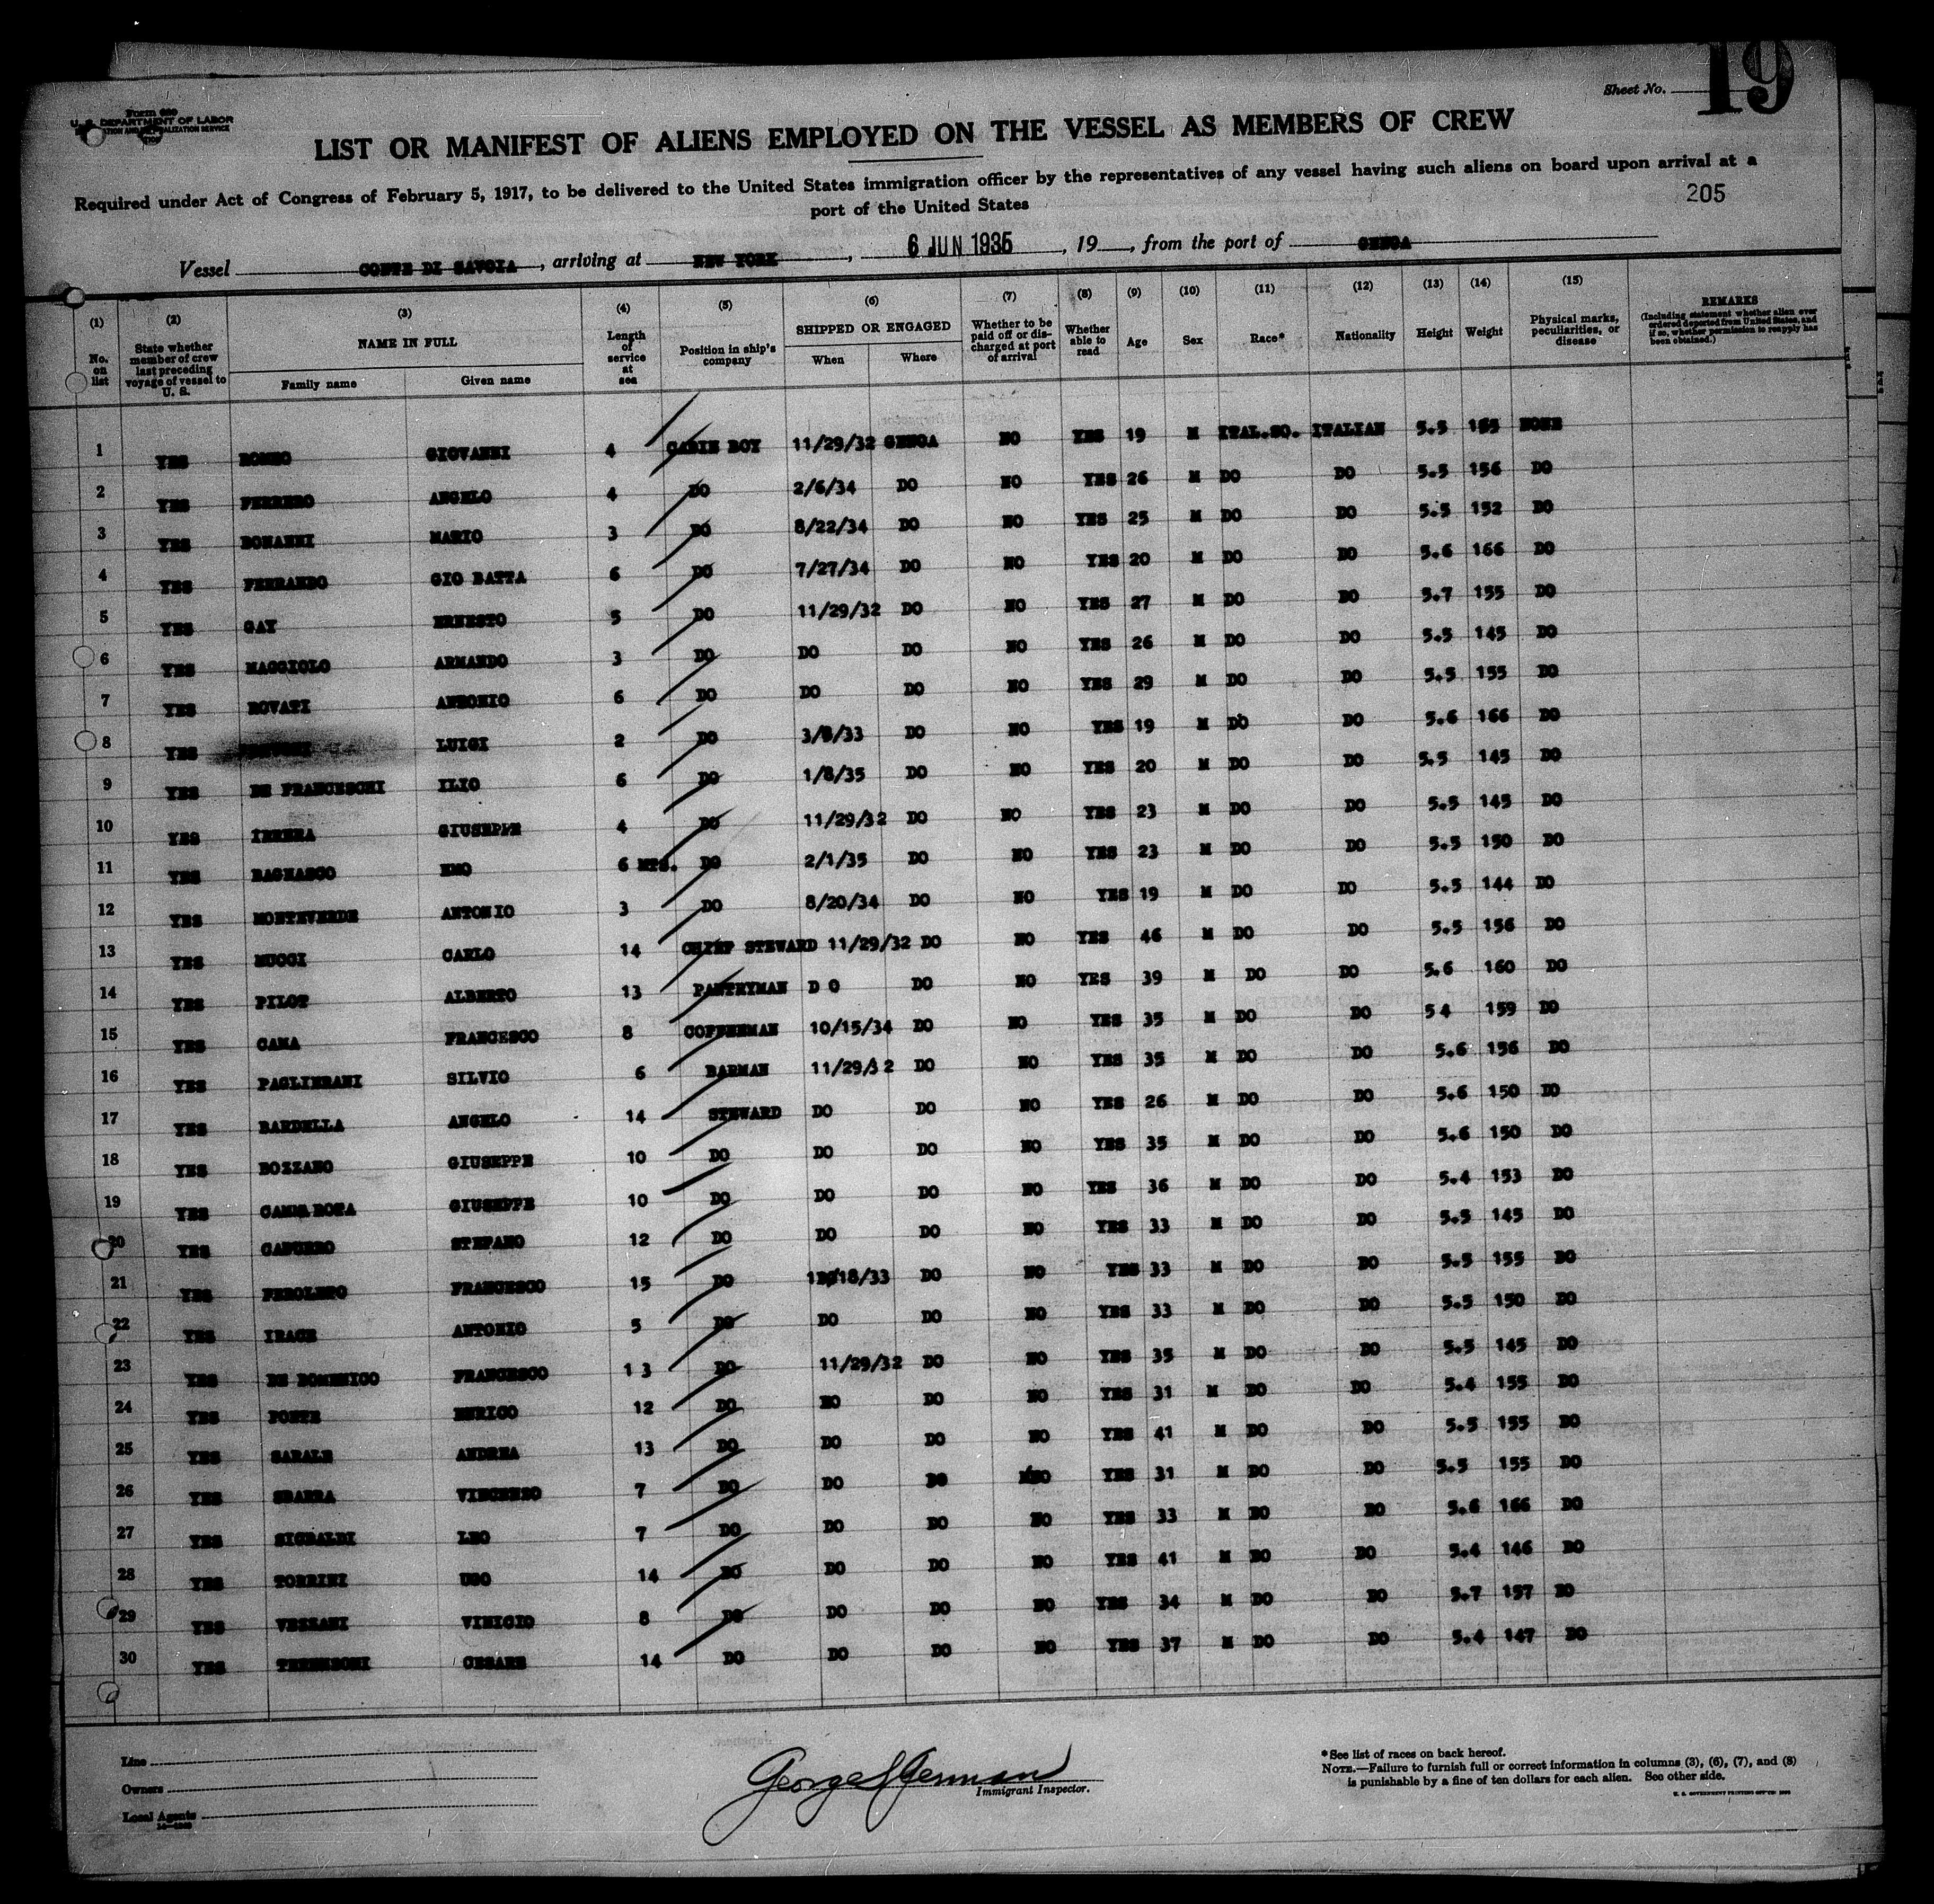 Sheet No. 19
Form 680
U. S. DEPARTMENT OF LABOR
LIST OR MANIFEST OF ALIENS EMPLOYED ON THE VESSEL AS MEMBERS OF CREW
Required under Act of Congress of February 5, 1917, to be delivered to the United States immigration officer by the representatives of any vessel having such aliens on board upon arrival at a
port of the United States
205
Vessel CONTE DI SAVOIA, arriving at NEW YORK, 6 JUN 1935, 19, from the port of GENOA
(1) (2) (3) (4) (5) (6) (7) (8) (9) (10) (11) (12) (13) (14) (15)
No. on list State whether member of crew last preceding voyage of vessel to U. S. NAME IN FULL Family name Given name Length of service at sea Position in ship's company SHIPPED OR ENGAGED When Where Whether to be paid off or discharged at port of arrival Whether able to read Age Sex Race* Nationality Height Weight Physical marks, peculiarities, or disease REMARKS (Including statement whether alien ever ordered deported from United States, and if so, whether permission to reapply has been obtained.)
1 YES ROMEO GIOVANNI 4 CABIN BOY 11/29/32 GENOA NO YES 19 M ITAL.SO. ITALIAN 5.5 NONE
2 YES FERRERO ANGELO 4 DO 2/6/34 DO NO YES 26 M DO DO 5.5 156 DO
3 YES BONANNI MARIO 3 DO 8/22/34 DO NO YES 25 M DO DO 5.5 152 DO
4 YES FERRANDO GIO BATTA 6 DO 7/27/34 DO NO YES 20 M DO DO 5.6 166 DO
5 YES GAY ERNESTO 5 DO 11/29/32 DO NO YES 27 M DO DO 5.7 155 DO
6 YES MAGGIOLO ARMANDO 3 DO DO DO NO YES 26 M DO DO 5.5 145 DO
7 YES ROVATI ANTONIO 6 DO DO DO NO YES 29 M DO DO 5.5 155 DO
8 YES LUIGI 2 DO 3/8/33 DO NO YES 19 M DO DO 5.6 166 DO
9 YES DE FRANCESCHI ILIO 6 DO 1/8/35 DO NO YES 20 M DO DO 5.5 145 DO
10 YES IRRERA GIUSEPPE 4 DO 11/29/32 DO NO YES 23 M DO DO 5.5 145 DO
11 YES BAGNASCO EMO 6 MTS. DO 2/1/35 DO NO YES 23 M DO DO 5.5 150 DO
12 YES MONTEVERDE ANTONIO 3 DO 8/20/34 DO NO YES 19 M DO DO 5.5 144 DO
13 YES MUCCI CARLO 14 CHIEF STEWARD 11/29/32 DO NO YES 46 M DO DO 5.5 156 DO
14 YES PILOT ALBERTO 13 PANTRYMAN D O DO NO YES 39 M DO DO 5.6 160 DO
15 YES CAMA FRANCESCO 8 COFFEEMAN 10/15/34 DO NO YES 35 M DO DO 5 4 159 DO
16 YES PAGLIERANI SILVIO 6 BARMAN 11/29/32 DO NO YES 35 M DO DO 5.6 156 DO
17 YES BARDELLA ANGELO 14 STEWARD DO DO NO YES 26 M DO DO 5.6 150 DO
18 YES BOZZANO GIUSEPPE 10 DO DO DO NO YES 35 M DO DO 5.6 150 DO
19 YES GIUSEPPE 10 DO DO DO NO YES 36 M DO DO 5.4 153 DO
20 YES CAPURRO STEFANO 12 DO DO DO NO YES 33 M DO DO 5.5 145 DO
21 YES FEROLETO FRANCESCO 15 DO DO NO YES 33 M DO DO 5.5 155 DO
22 YES IRACE ANTONIO 5 DO DO DO NO YES 33 M DO DO 5.5 150 DO
23 YES DE DOMENICO FRANCESCO 1 3 DO 11/29/32 DO NO YES 35 M DO DO 5.5 145 DO
24 YES PONTE ENRICO 12 DO DO NO YES 31 M DO DO 5.4 155 DO
25 YES SARALE ANDREA 13 DO DO DO NO YES 41 M DO DO 5.5 155 DO
26 YES SBARRA VINCENZO 7 DO DO DO NO YES 31 M DO DO 5.5 155 DO
27 YES SIGBALDI LEO 7 DO DO DO NO YES 33 M DO DO 5.6 166 DO
28 YES TORRINI UGO 14 DO DO DO NO YES 41 M DO DO 5.4 146 DO
29 YES VEZZANI VINICIO 8 DO DO DO NO YES 34 M DO DO 5.7 157 DO
30 YES CESARE 14 DO DO DO NO YES 37 M DO DO 5.4 147 DO
Line
Owners
Local Agents
Immigrant Inspector.
*See list of races on back hereof.
NOTE.—Failure to furnish full or correct information in columns (3), (6), (7), and (8)
is punishable by a fine of ten dollars for each alien. See other side.